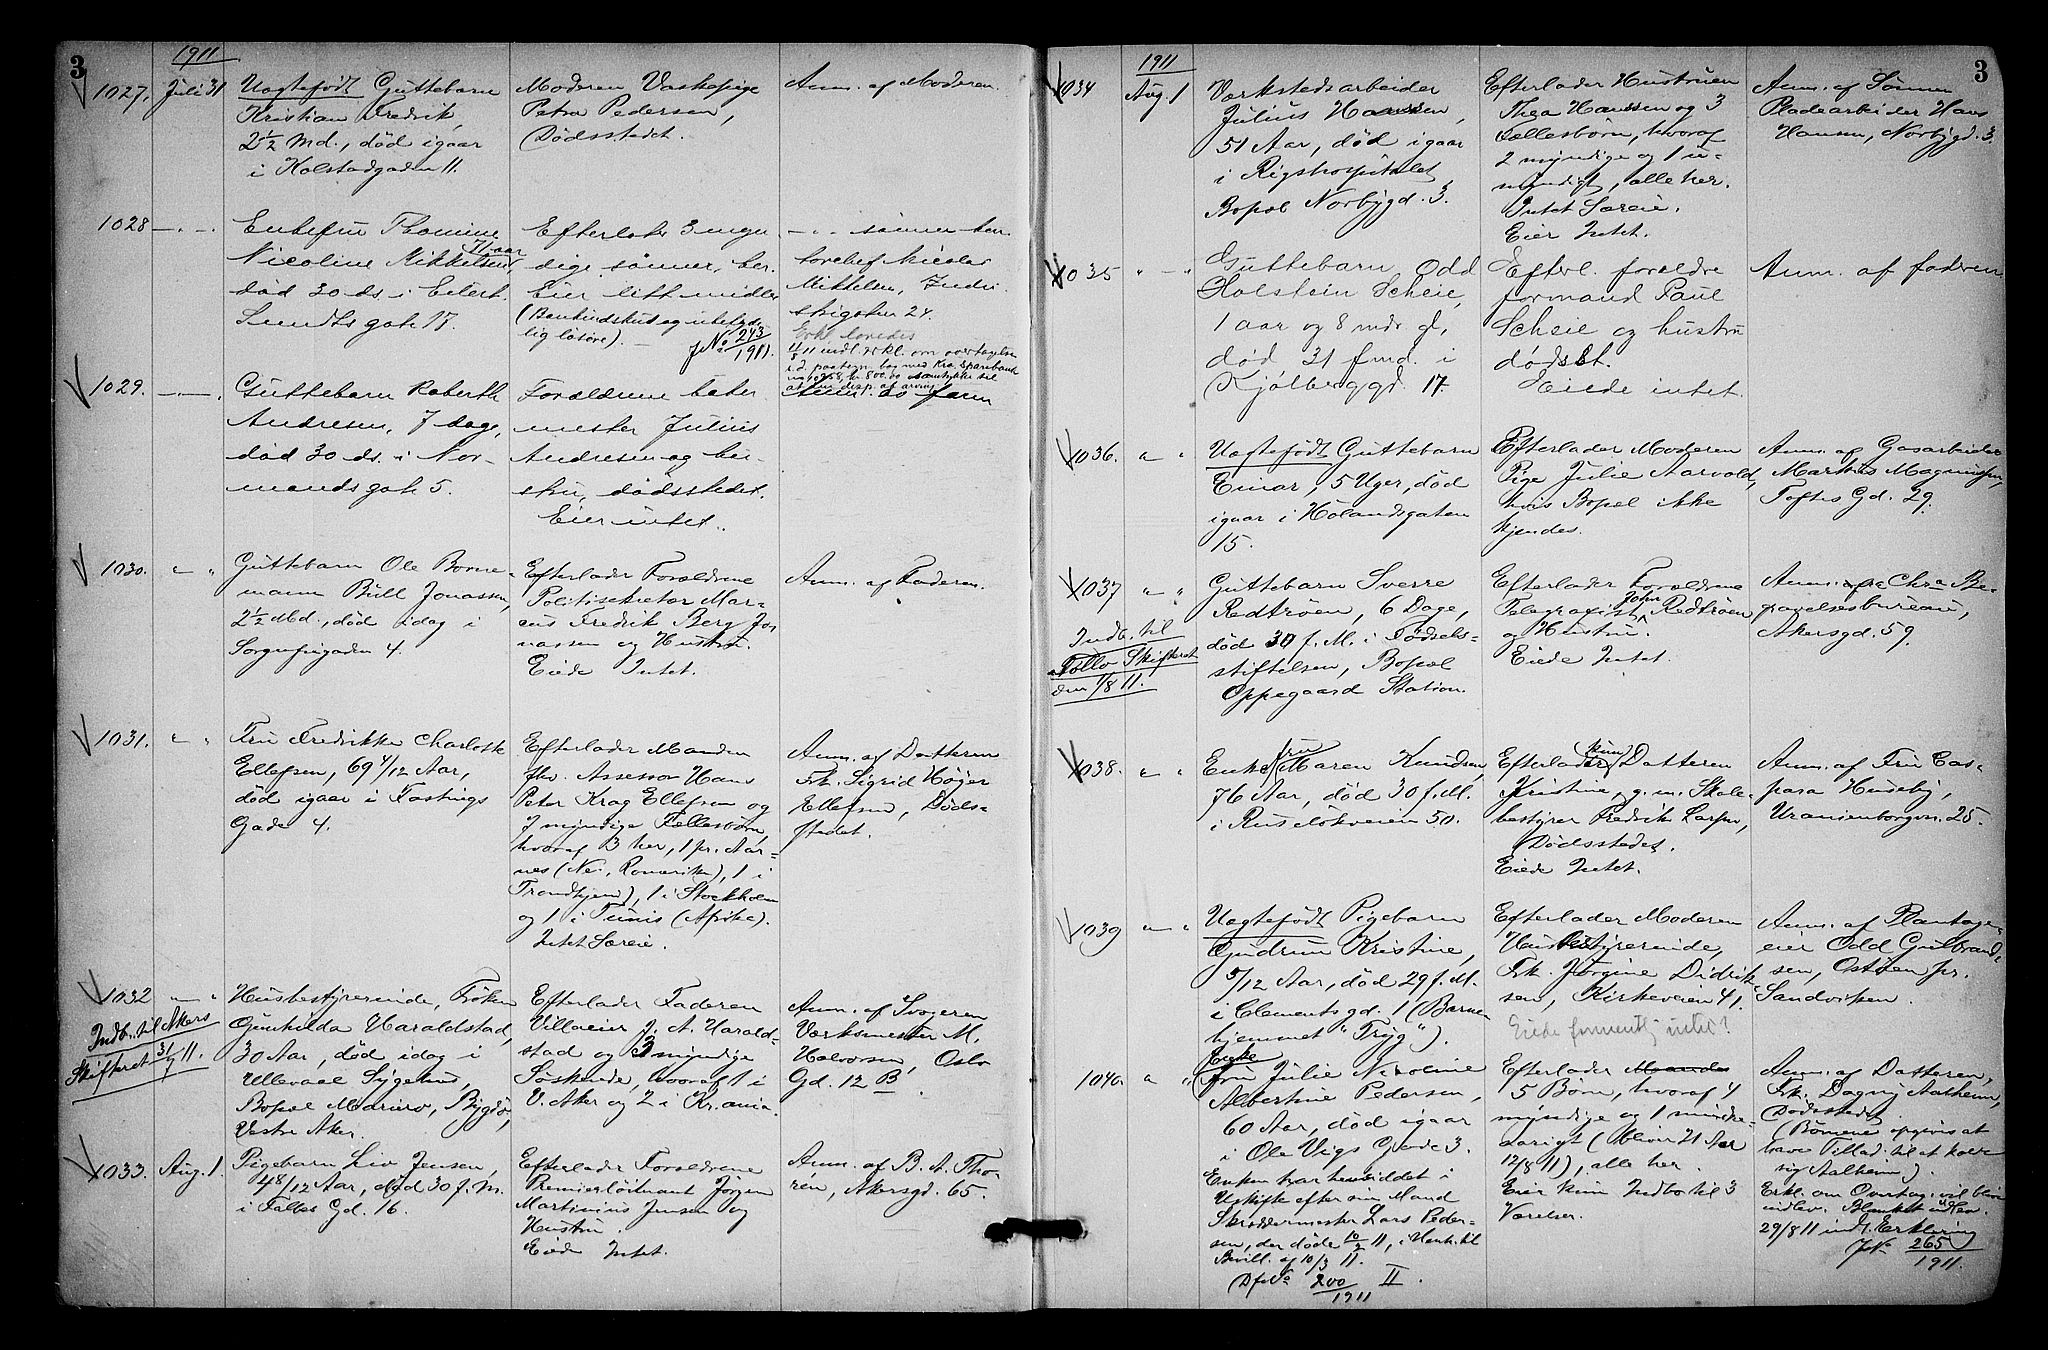 3
1911
1027. Juli 31
Uægtefødt Guttebarn
Kristian Fredrik,
2 1/2 Md., død igaar
i Kolstadgaden 11.
Moderen Vaskepige
Petra Pedersen,
Dødsstedet.
Anm. af Moderen.
1028 — " —
Enkefru Thomine
Nicoline Mikkelsen, 71 aar
død 30 ds. i Eilert
Sundts gate 17.
Efterlater 3 myn-
dige sønner, her.
Eier litt midler
(Bankindskud og ubetyde-
lig løsøre). —
JNo 243/1911.
— " — sønnen kon-
torchef Nicolai
Mikkelsen, Indu-
strigaten 24.
1029. — " —
Guttebarn Roberth
Andresen, 7 dage,
død 30 ds. i Nor-
mandsgate 5.
Forældrene baker-
mester Julius
Andresen og hu-
stru, dødsstedet.
Eier intet.
Anm. av faren
1030. " "
Guttebarn Ole Borne-
mann Bull Jonassen,
2 1/2 Md., død idag i
Sorgenfrigaden 4.
Efterlader Forældrene
Politisekretær Mar-
cus Fredrik Berg Jo-
nassen og Hustru.
Eiede Intet.
Anm. af Faderen.
1031. " "
Fru Fredrikke Charlotte
Ellefsen, 69 4/12 Aar,
død igaar i Fastings
Gade 4.
Efterlader Manden
fhv. Assessor Hans
Peter Krag Ellefsen og
7 myndige Fællesbørn,
hvoraf 3 her, 1 pr. Aar-
nes (Nes, Romerike), 1 i
Trondhjem), 1 i Stockholm
og 1 i Tunis (Afrika).
Intet Særeie.
Anm. af Datteren
Frk. Sigrid Høyer
Ellefsen, Døds-
stedet.
1032 " "
Indb. til Akers
Skifteret 31/7 11.
Husbestyrerinde, Frøken
Gunhilda Haraldstad,
30 Aar, død idag i
Ullevaal Sygehus,
Bopæl Mariero, Bygdø,
Vestre Aker.
Efterlader Faderen
Villaeier J. A. Harald-
stad og 3 myndige
Søskende, hvoraf 1 i
V. Aker og 2 i Kr.ania.
Anm. af Svogeren
Værksmester M.
Halvorsen, Oslo
Gd. 12 B.
1033. Aug. 1.
Pigebarn Liv Jensen,
4 8/12 Aar, død 30 f. M.
i Falbes Gd. 16.
Efterlader Forældrene
Premierløitnant Jørgen
Martinius Jensen og
Hustru.
Eiede Intet.
Anm. af B. A. Tho-
rén, Akersgd. 65.
3
1911
1034 Aug. 1
Værkstedsarbeider
Julius Hanssen,
51 Aar, død igaar
i Rigshospitalet
Bopæl Norbygd. 3.
Efterlader Hustruen
Thea Hanssen og 3
Fællesbørn, hvoraf
2 myndige og 1 u-
myndigt, alle her.
Intet Særeie.
Eier Intet.
Anm. af Sønnen
Pladearbeider Hans
Hansen, Norbygd. 3.
1035 " "
Guttebarn Odd
Holstein Scheie,
1 aar og 8 mdr gl,
død 31 f.md. i
Kjølberggd. 17.
Efterl. forældre
formand Paul
Scheie og hustru
dødsst.
Eiede intet.
Anm. af faderen
1036. " "
Uægtefødt Guttebarn
Einar, 5 Uger, død
igaar i Hølandsgaten
15.
Efterlader Moderen
Pige Julie Aarvold,
hvis Bopæl ikke
kjendes.
Anm. af Gasarbeider
Markus Magnussen,
Toftes Gd. 29.
1037 " "
Indb. til
Follo Skifteret
den 1/8 11.
Guttebarn Sverre
Redtrøen, 6 Dage,
død 30 f. M. i Fødsels-
stiftelsen, Bopæl
Oppegaard Station.
Efterlader Forældrene
Telegrafist John Redtrøen
og Hustru.
Eiede Intet.
Anm. fra Chra Be-
gravelsesbureau,
Akersgd. 59.
1038. " "
Enkefru Maren Knudsen,
76 Aar, død 30 f. M.
i Ruseløkveien 50.
Efterlader kun Datteren
Kristine, g. m. Skole-
bestyrer Fredrik Larsen,
Dødsstedet.
Eiede Intet.
Anm. af Fru Cas-
para Huseby,
Uranienborgvn. 25.
1039 " "
Uægtefødt Pigebarn
Gudrun Kristine,
5/12 Aar, død 29 f. M.
i Clementsgd. 1 (Barne-
hjemmet "Tryg").
Efterlader Moderen
Husbestyrerinde,
Frk. Jørgine Didrik-
sen, Kirkeveien 41.
Eiede forment. intet?
Anm. af Plantage-
eier Odd Gulbrand-
sen, Ostøen pr.
Sandviken.
1040. " "
Enke
Fru Julie Nicoline
Albertine Pedersen,
60 Aar, død igaar
i Ole Vigs Gade 3.
Enken har hensiddet i
Uskifte efter sin Mand
Skræddermester Lars Peder-
sen, der døde 10/2 11, i Henh. til
Bevill. af 10/3 11.
DfNo 200/1911 II.
Efterlader Manden
5 Børn, hvoraf 4
myndige og 1 mindre-
aarigt (bliver 21 Aar
12/8 11), alle her.
Eier kun Indbo til 3
Værelser.
Anm. af Datteren,
Frk. Dagny Aalheim,
Dødsstedet.
(Børnene opgives at
have Tillad. til at kalde
sig Aalheim).
Erkl. om Overtag. vil blive
indlev. Blanket udlev.
29/8 11 indl. Erklæring
JNo 265/1911.